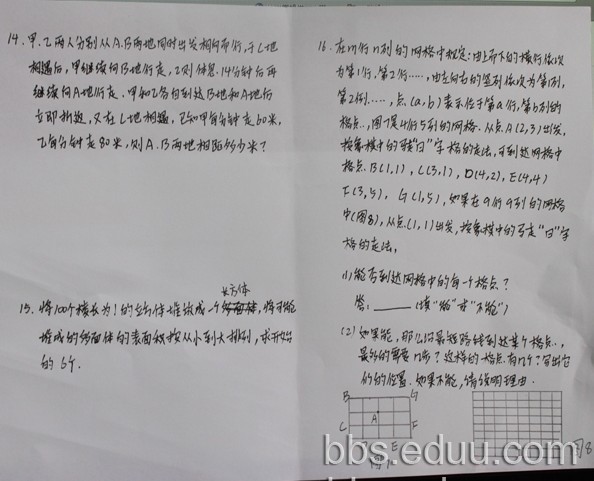 14. 甲、乙两人分别从A.B两地同时出发相向而行,于C地
相遇后,甲继续向B地行走,乙则休息14分钟后再
继续向A地行走.甲和乙各自到达B地和A地后
立即折返,又在C地相遇,已知甲每分钟走60米,
乙每分钟走80米,则A.B两地相距多少米?
15. 将100个棱长为1的立方体堆放成一个
长方体
,将可能
堆成的多面体的表面积按从小到大排列,求开始
的6个.
16. 在m行n列的网格中规定:由上而下的横行依次
为第1行,第2行……,由左向右的竖列依次为第1列,
第2列……,点(a,b)表示位于第a行,第b列的
格点.图7是4行5列的网格.从点A(2,3)出发,
按象棋中的马走“日”字格的走法,可到达网格中
格点B(1,1),C(3,1),D(4,2),E(4,4)
F(3,5),G(1,5),如果在9行9列的网格
中(图8),从点(1,1)出发,按象棋中的马走“日”字
格的走法,
(1)能否到达网格中的每一个格点?
答:______(填“能”或“不能”)
(2)如果能,那么沿最短路线到达某个格点,
最多的需要几步?这样的格点有几个?写出它
们的位置.如果不能,请说明理由.
B G
A
C F
E
图8
bbs.eduu.com